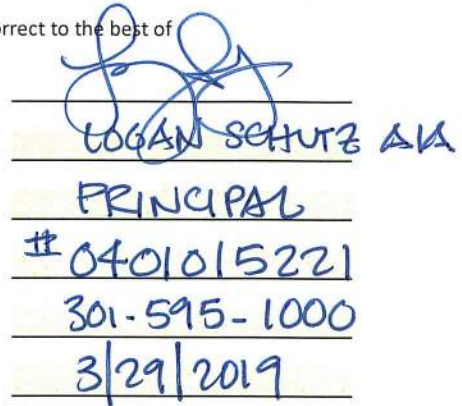 orrect to the best of
LOGAN SCHUTZ AIA
PRINCIPAL
# 0401015221
301-595-1000
3/29/2019